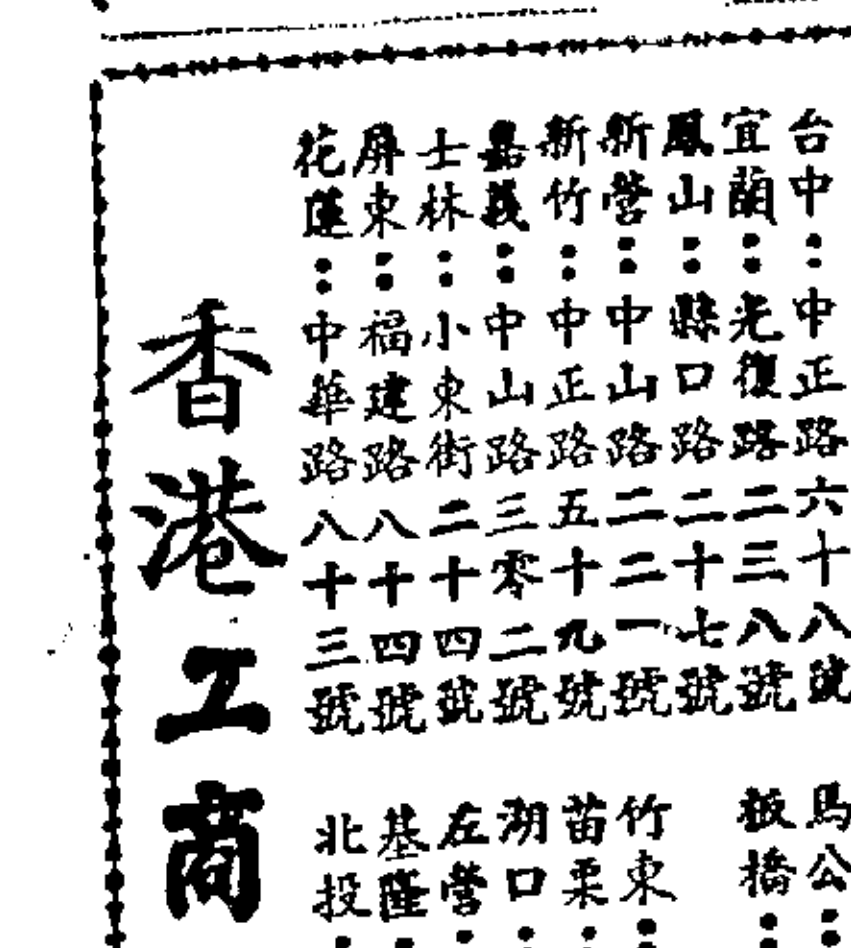 台中：中正路六十八號
宜蘭：光復路二三八號
鳳山：縣口路二十七號
新營：中山路二二一號
新竹：中正路五十九號
嘉義：中山路三零二號
士林：小東街二十四號
屏東：福建路八十四號
花蓮：中華路八十三號
馬公：
板橋：
竹東：
苗栗：
湖口：
左營：
基隆：
北投：
香港工商